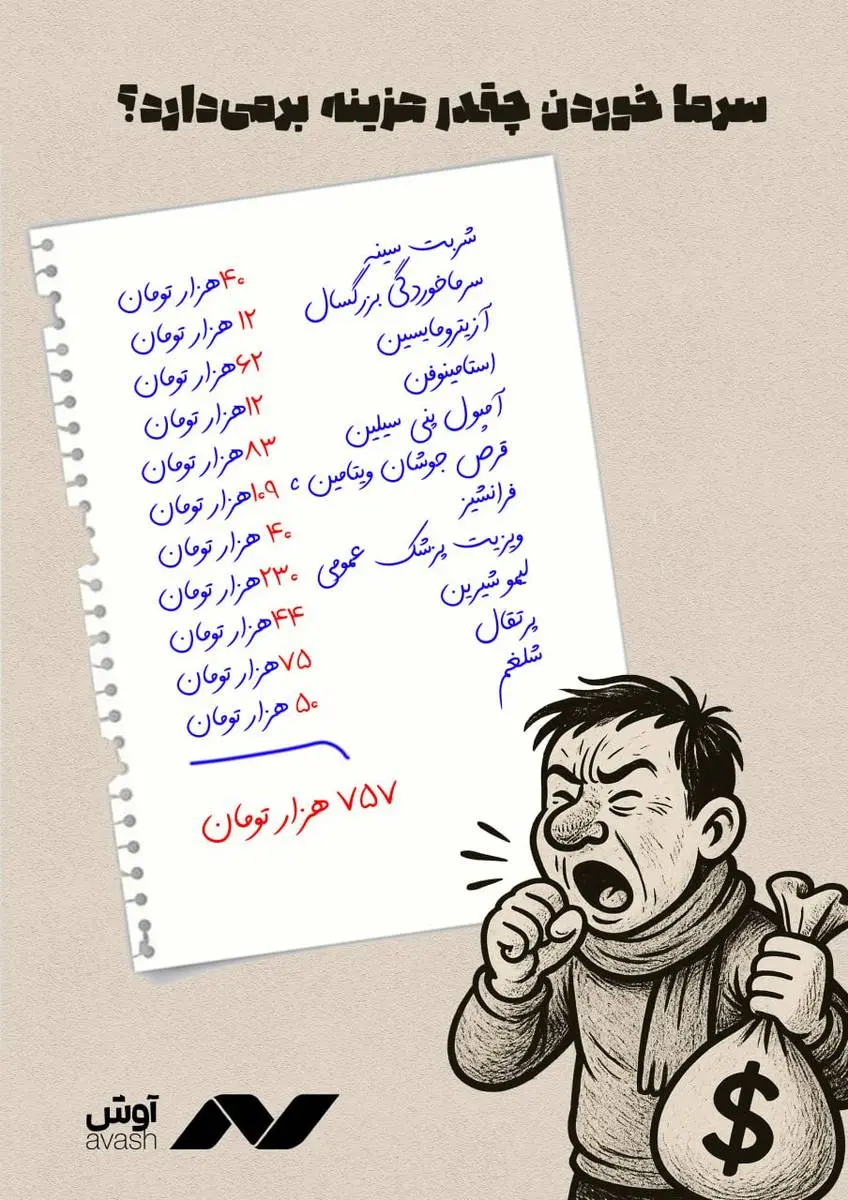 سرما خوردن چقدر هزینه برمی‌دارد؟
شربت سینه ۴۰هزار تومان
سرماخوردگی بزرگسال ۱۲ هزار تومان
آزیترومایسین ۶۲هزار تومان
استامینوفن ۱۲هزار تومان
آمپول پنی سیلین ۸۳هزار تومان
قرص جوشان ویتامین c ۱۰۹هزار تومان
فرانشیز ۴۰ هزار تومان
ویزیت پزشک عمومی ۲۳۰هزار تومان
لیمو شیرین ۴۴هزار تومان
پرتقال ۷۵هزار تومان
شلغم ۵۰ هزار تومان
۷۵۷ هزار تومان
$
آوش
avash